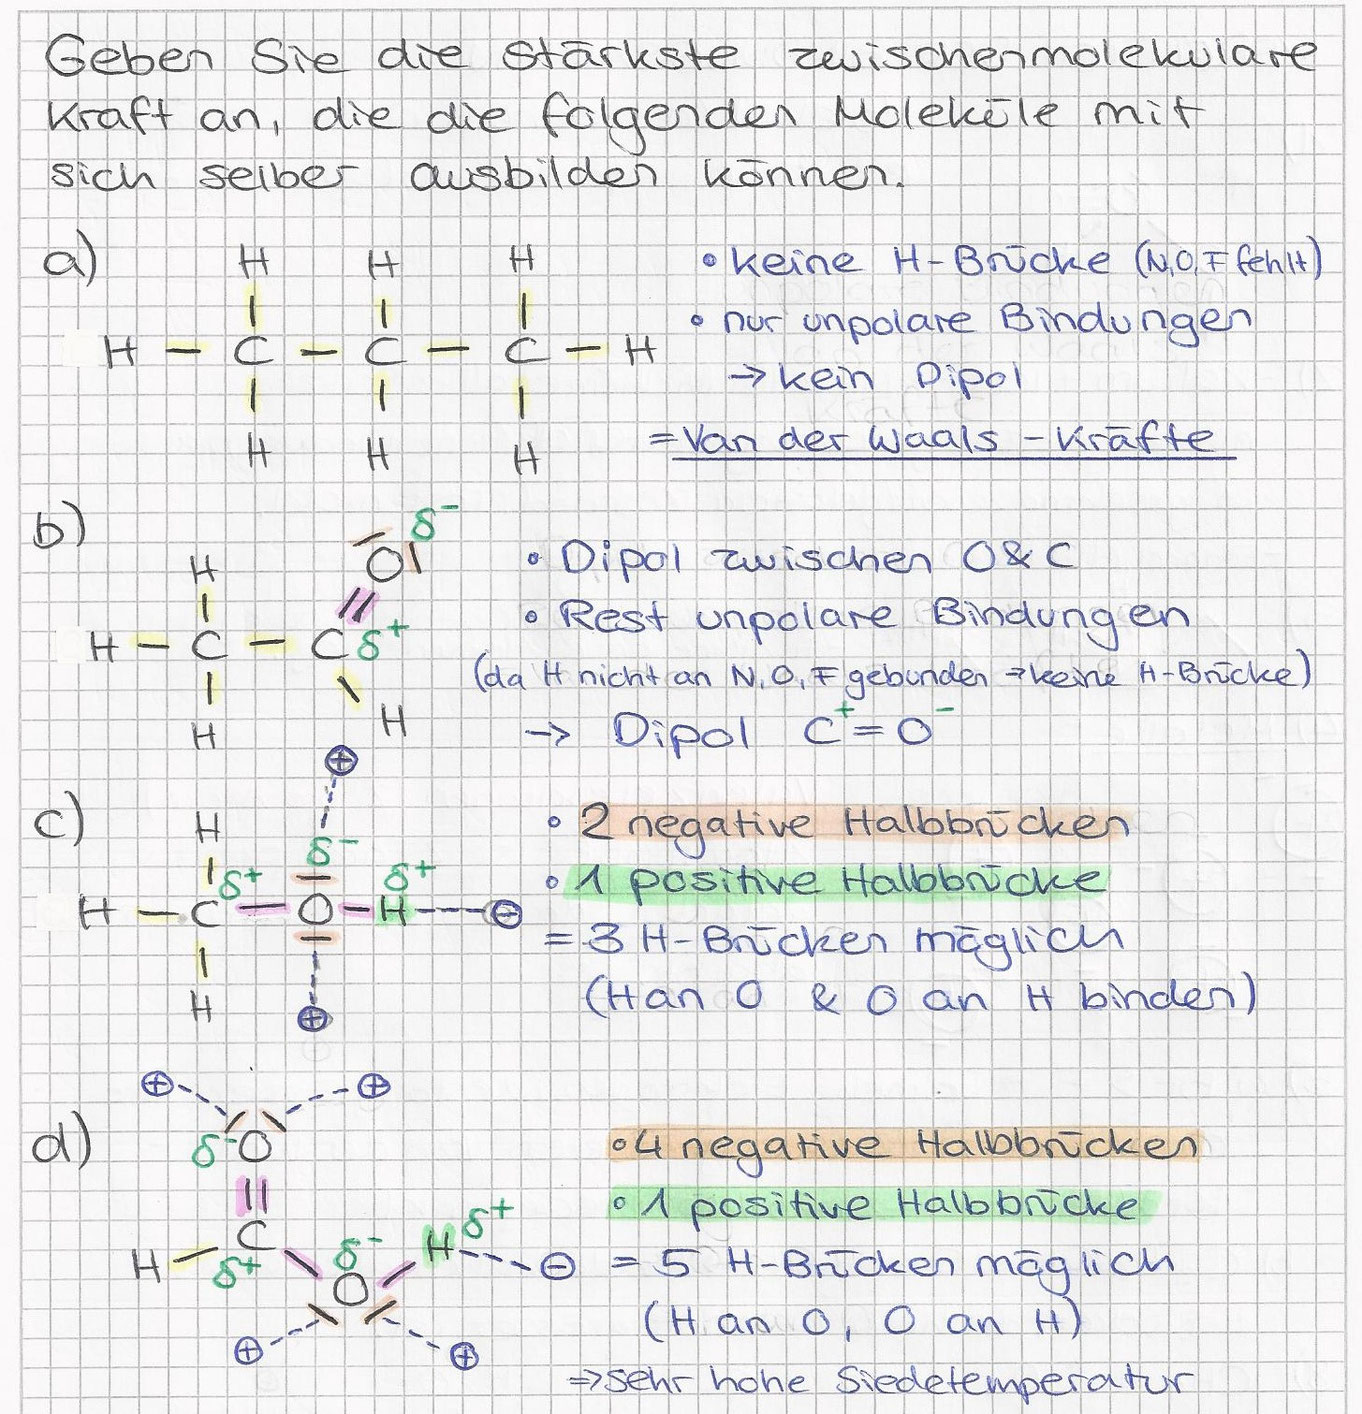 Geben Sie die stärkste zwischenmolekulare
Kraft an, die die folgenden Moleküle mit
sich selber ausbilden können.
a)
H H H
H – C – C – C – H
H H H
• keine H-Brücke (N,O,F fehlt)
• nur unpolare Bindungen
→ kein Dipol
= Van der Waals - Kräfte
b)
O δ-
H
H – C – C δ+
H H
• Dipol zwischen O & C
• Rest unpolare Bindungen
(da H nicht an N,O,F gebunden → keine H-Brücke)
→ Dipol C+ = O-
c)
⊕
H δ- δ+
δ+
H – C – O – H ---- ⊖
H
⊕
• 2 negative Halbbrücken
• 1 positive Halbbrücke
= 3 H-Brücken möglich
(H an O & O an H binden)
d)
⊕ ⊕
δ- O
C δ- H δ+
H δ+ O ⊖
⊕ ⊕
• 4 negative Halbbrücken
• 1 positive Halbbrücke
= 5 H-Brücken möglich
(H an O, O an H)
⇒ sehr hohe Siedetemperatur